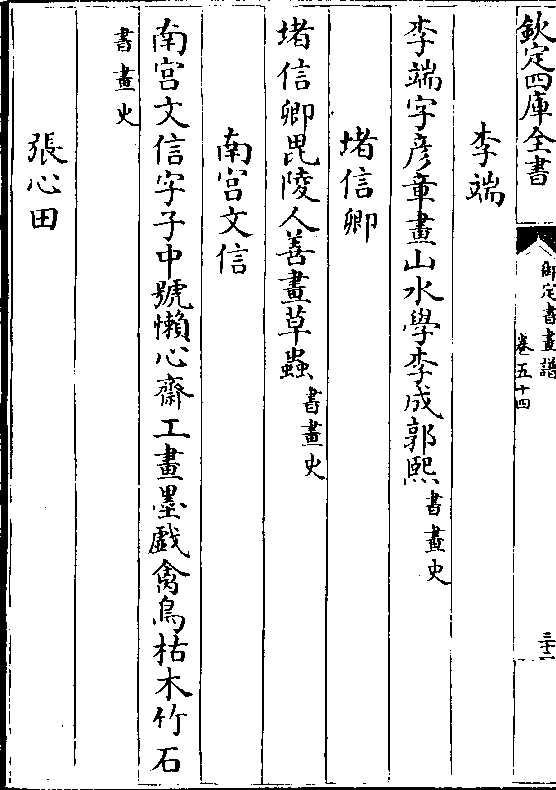 欽定四庫全書
御定書畫譜
卷五十四
三十二
李端
李端字彦章畫山水學李成郭熙書畫史
堵信卿
堵信卿毘陵人善畫草蟲書畫史
南宫文信
南宫文信字子中號懶心齋工畫墨戯禽鳥枯木竹石
書畫史
張心田